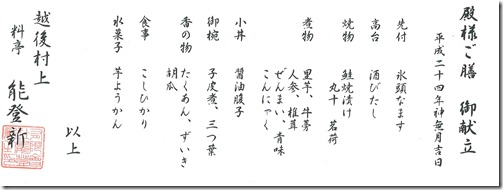 殿様ご膳 御献立
平成二十四年神無月吉日
先付 氷頭なます
高台 酒びたし
焼物 鮭焼漬け 茗荷
丸十
煮物 里芋、牛蒡
人参、椎茸
ぜんまい、青味
こんにゃく
小丼 醤油腹子
御椀 子皮煮、三つ葉
香の物 たくあん、ずいき
胡瓜
食事 こしひかり
水菓子 芋ようかん
以上
越後村上
料亭 能登新